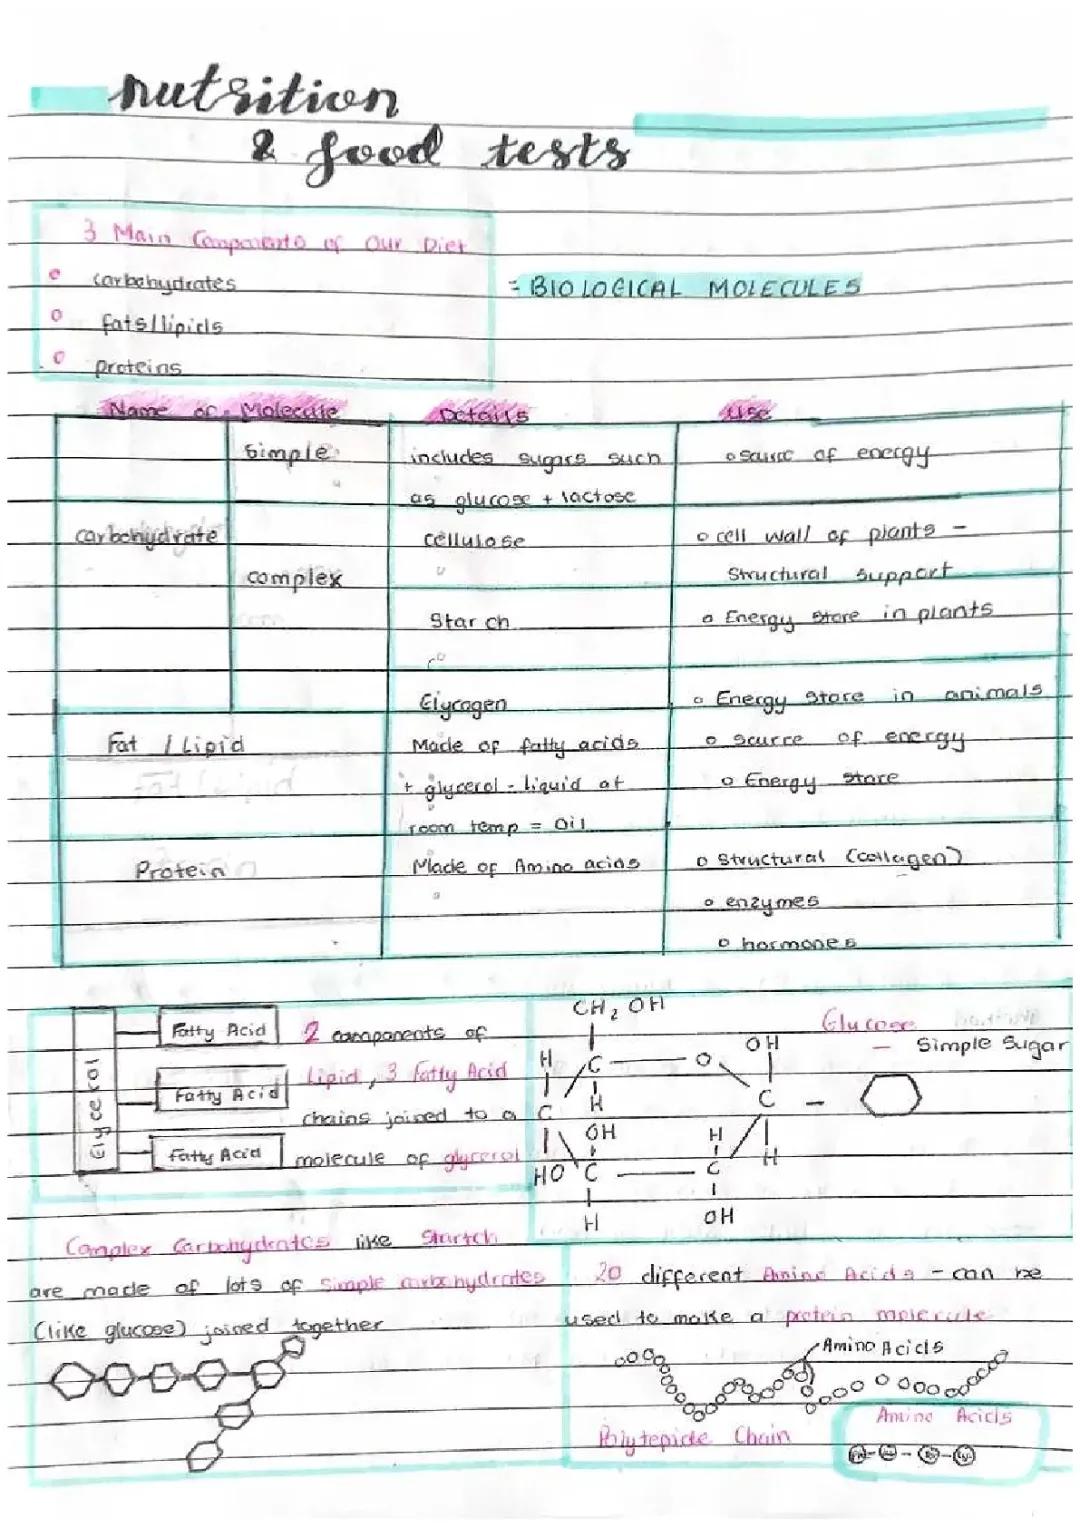 nutrition
& food tests
3 Main Components of Our Diet
carbohydrates
fats/lipids
proteins
= BIOLOGICAL MOLECULES
Name of Molecule Details Use
simple includes sugars such source of energy
as glucose + lactose
carbohydrate cellulose cell wall of plants -
complex structural support
Starch Energy store in plants
Glycogen Energy store in animals
Fat / Lipid Made of fatty acids source of energy
+ glycerol - liquid at Energy store
room temp = Oil
Protein Made of Amino acids structural (collagen)
enzymes
hormones
Glycerol
Fatty Acid
Fatty Acid
Fatty Acid
2 components of
lipid, 3 fatty Acid
chains joined to a
molecule of glycerol
CH2OH
Glucose
- Simple Sugar
H C O OH
H C
C OH H H
HO C C
H OH
Complex Carbohydrates like Startch
are made of lots of simple carbohydrates
(like glucose) joined together
20 different Amino Acids - can be
used to make a protein molecule
Amino Acids
Polytepide Chain
Amino Acids